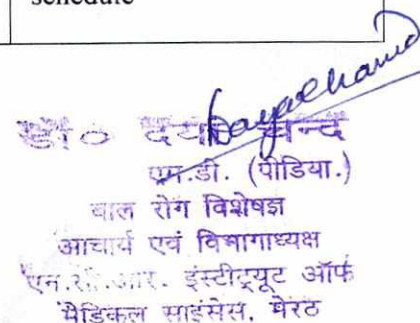 schedule
Dayachand
डॉ० दया चन्द
एम.डी. (पीडिया.)
बाल रोग विशेषज्ञ
आचार्य एवं विभागाध्यक्ष
एन.सी.आर. इंस्टीट्यूट ऑफ
मैडिकल साइंसेस, मेरठ